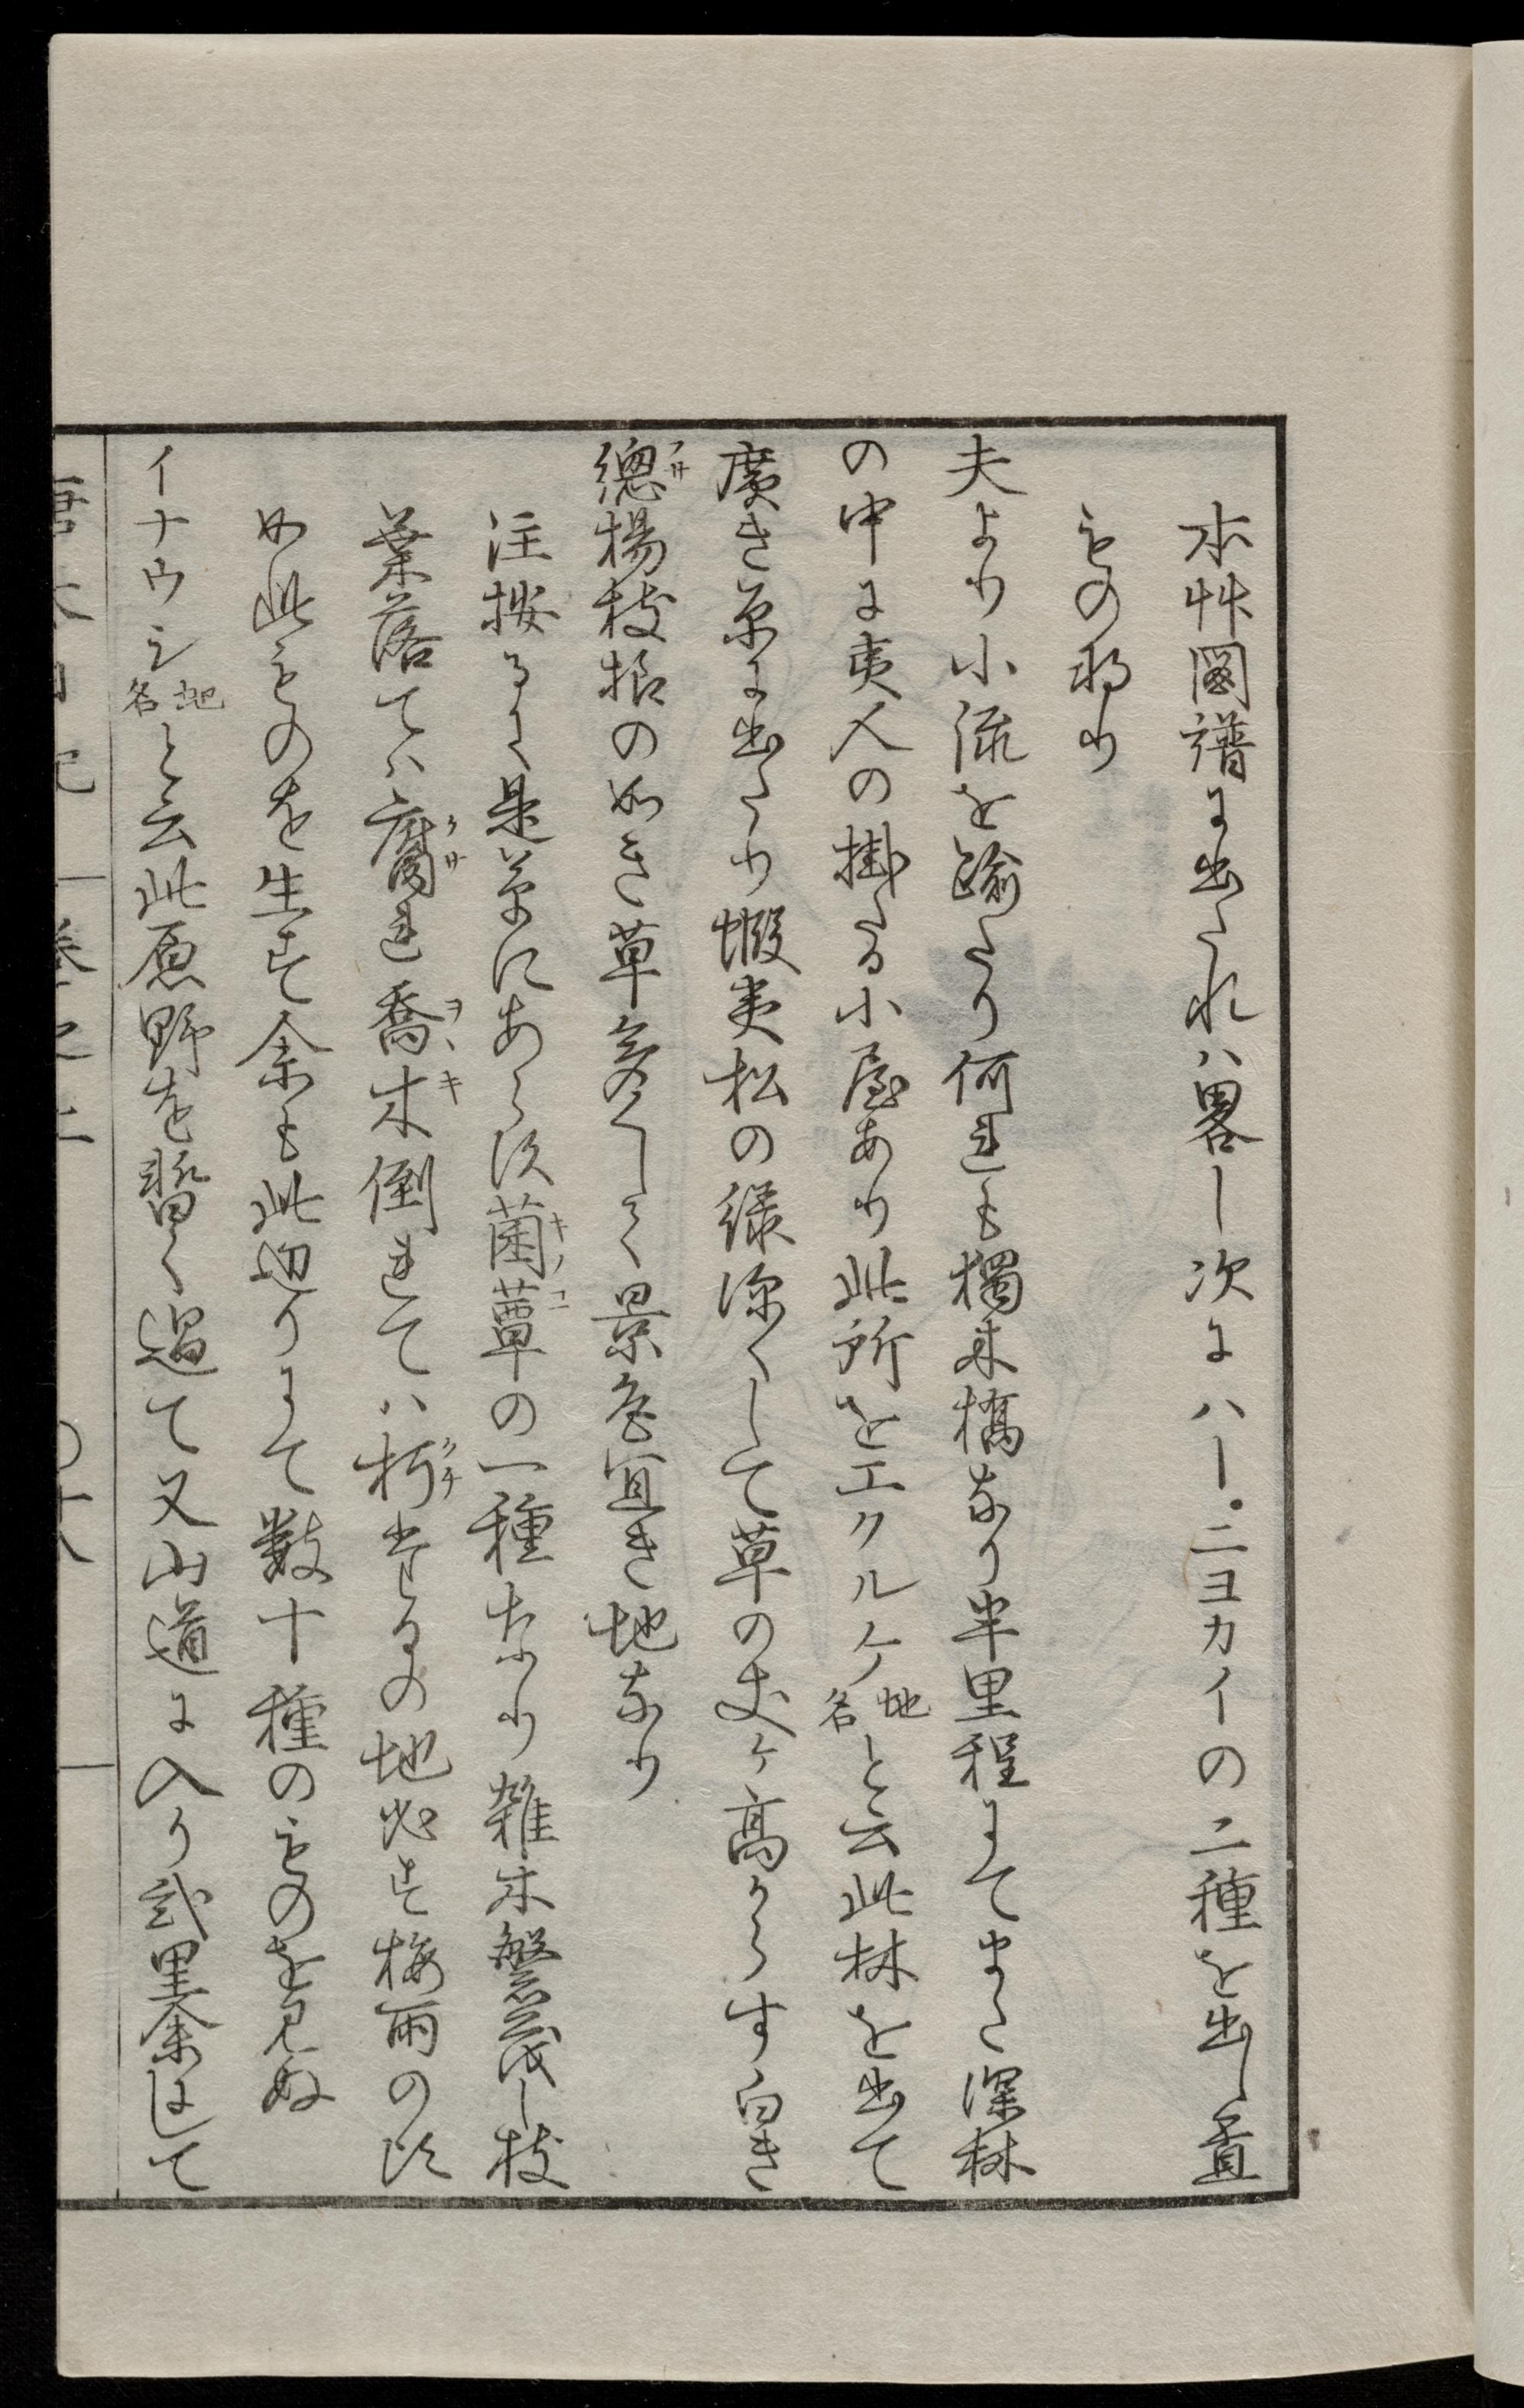 本艸圖譜に出たれハ畧し次にハー。ニヨカイの二種を出し置
もの那り
夫より小流を踰たり何れも獨木橋なり半里程にてまた深林
の中に夷人の掛たる小屋あり此所をエクルケ地名と云此林を出て
廣き原に出たり蝦夷松の緑深くして草の丈ケ高からす白き
總楊枝抔の如き草多くして景色宜き地なり
注按るに是草にあらす菌蕈の一種なり雑木繁茂し枝
葉落てハ腐れ喬木倒れてハ朽たるの地必す梅雨の頃
如此ものを生す余も此辺りにて數十種のものを見ぬ
イナウシ地名と云此原野を暫く過て又山道に入り弐里余にして